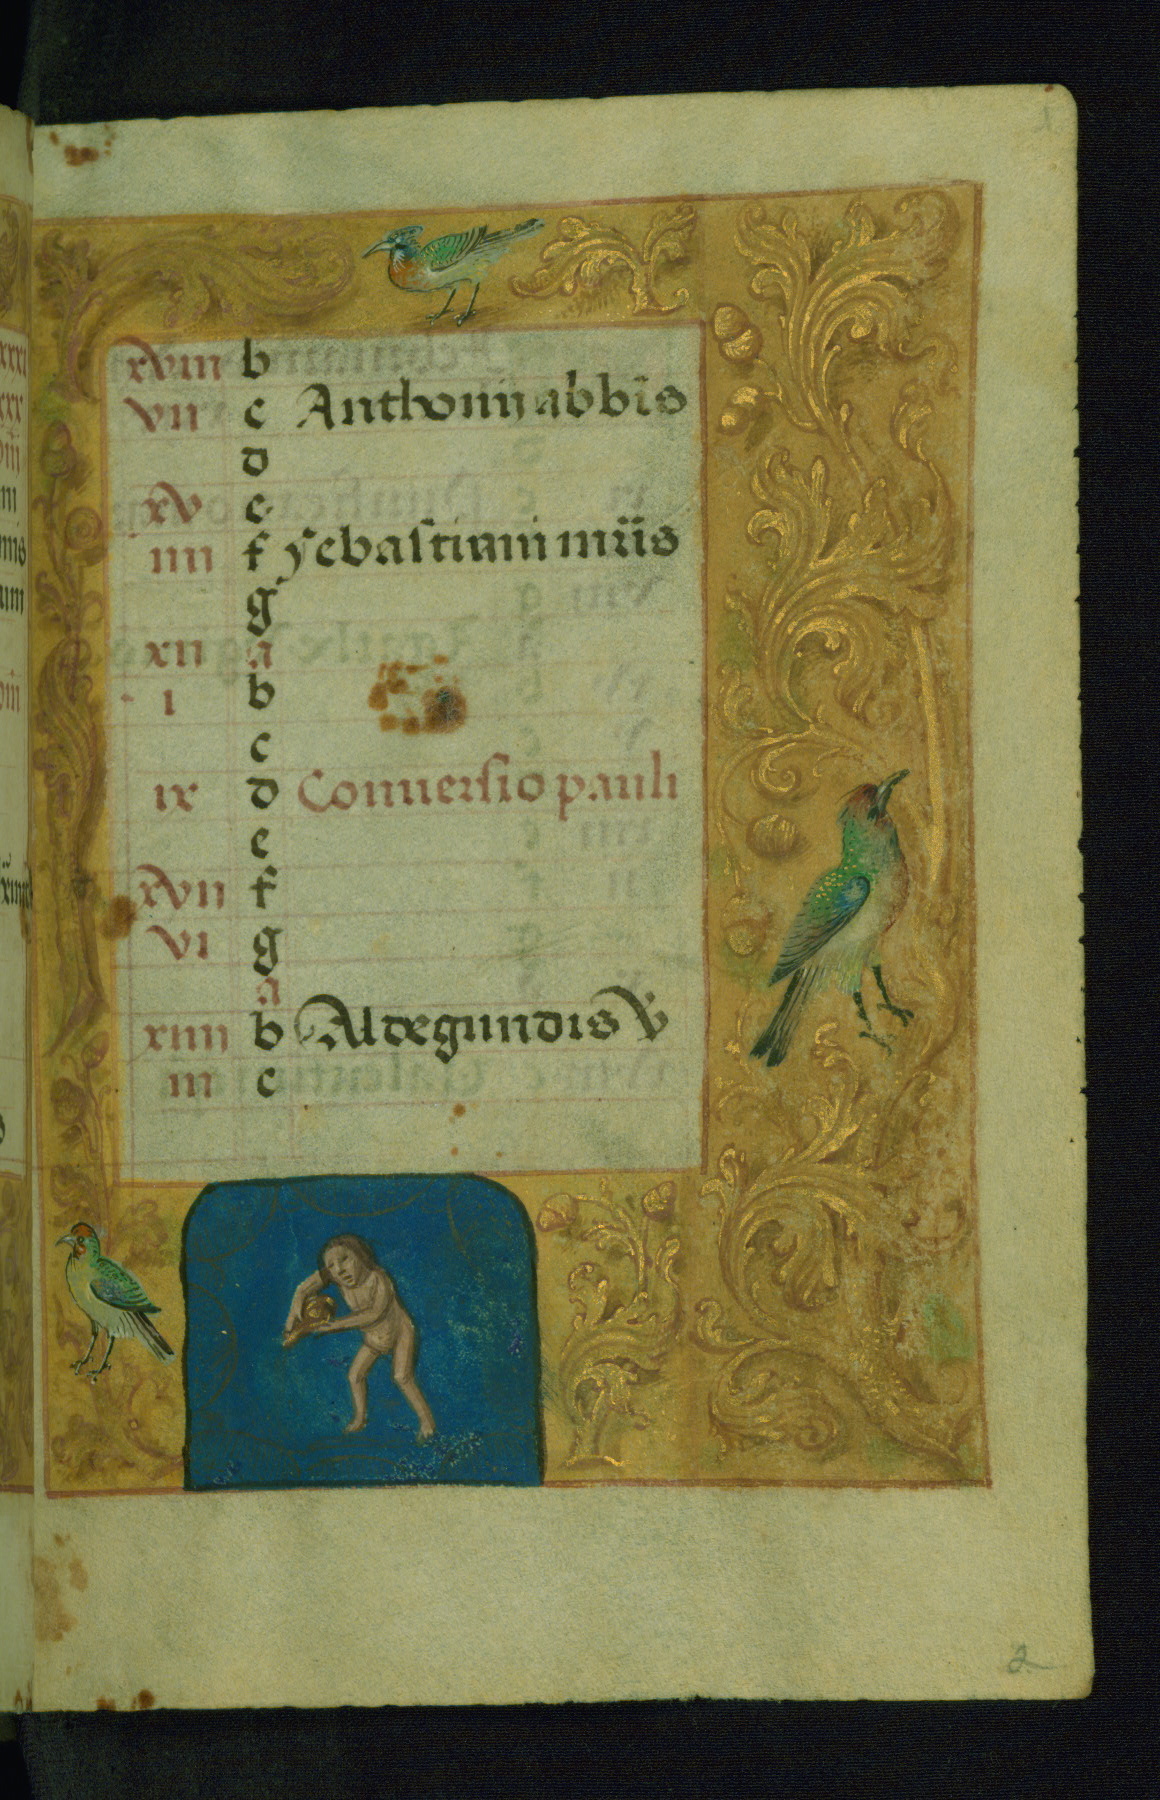 xviii b
vii c Anthonij abbis
d
xv e
iiii f Sebastiani mris
g
xii a
i b
c
ix d Conuersio pauli
e
xvii f
vi g
a
xiiii b Aldegundis v
iii c
2